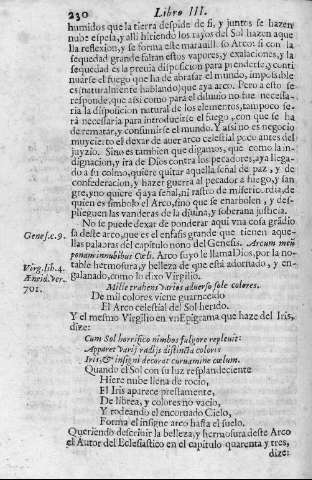 230 Libro III.
humidos que la tierra despide de si, y juntos se hazen
nube espesa, y alli hiriendo los rayos del Sol hazen aque
lla reflexion, y se forma este maravill. so Arco: si con la
sequedad grande faltan estos vapores, y exalaciones, y la
sequedad es la previa disposicion para prenderse, y conti
nuarse el fuego que ha de abrasar el mundo, impossible
es (naturalmente hablando) que aya arco. Pero a esto se
responde, que assi como para el diluuio no fue necessa-
ria la disposicion natural de los elementos, tampoco se-
rà necessaria para introducirse el fuego, con que se ha
de rematar, y consumirse el mundo. Y assi no es negocio
muy cierto el dexar de auer arco celestial poco antes del
juyzio. Sino es tambien que digamos, que como la in-
dignacion, y ira de Dios contra los pecadores, aya llega-
do a su colmo, quiere quitar aquella señal de paz, y de
confederacion, y hazer guerra al pecador a fuego, y san
gre, y no quiere q̃ aya señal, ni rastro de misericordia, de
quien es simbolo el Arco, sino que se enarbolen, y des-
plieguen las vanderas de la diuina, y soberana justicia.
No se puede dexar de ponderar aqui vna cosa grãdio
sa deste arco, que es el enfasis grande que tienen aque-
Genes. c. 9. llas palabras del capitulo nono del Genesis. Arcum meũ
ponam in nubibus Cœli. Arco suyo le llama Dios, por la no
Virg. lib. 4. table hermosura, y belleza de que està adornado, y en-
Æneid. ver. galanado, como lo dixo Virgilio.
701. Mille trahens varios aduerso sole colores.
De mil colores viene guarnecido
El Arco celestial del Sol herido.
Y el mesmo Virgilio en vn Epigrama que haze del Iris,
dize:
Cum Sol horrifico nimbos fulgore repleuit:
Apparet varijs radijs distincta coloris
Iris, & insigni decorat curuamine cœlum.
Quando el Sol con su luz resplandeciente
Hiere nube llena de rocio,
El Iris aparece prestamente,
De librea, y colores no vacio,
Y rodeando el encoruado Cielo,
Forma el insigne arco hasta el suelo.
Queriendo describir la belleza, y hermosura deste Arco
el Autor del Eclesiastico en el capitulo quarenta y tres,
dize: